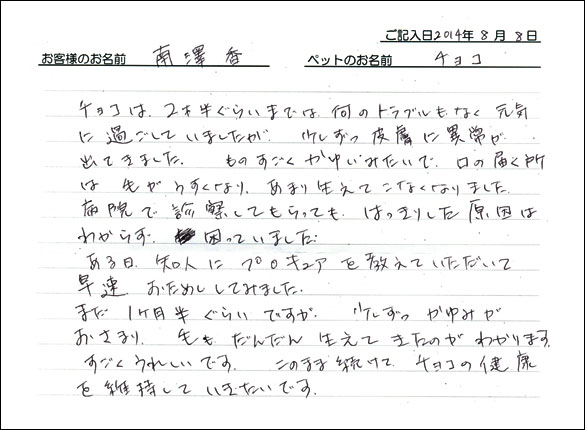 ご記入日2014年8月8日
お客様のお名前 南澤香 ペットのお名前 チョコ
チョコは、2才半ぐらいまでは何のトラブルもなく元気
に過ごしていましたが、少しずつ皮膚に異常が
出てきました。ものすごくかゆいみたいで、口の届く所
は毛がうすくなり、あまり生えてこなくなりました。
病院で診察してもらっても、はっきりした原因は
わからず、困っていました。
ある日、知人にプロキュアを教えていただいて
早速おためししてみました。
まだ1ヶ月半ぐらいですが、少しずつかゆみが
おさまり、毛もだんだん生えてきたのがわかります。
すごくうれしいです。このまま続けて、チョコの健康
を維持していきたいです。